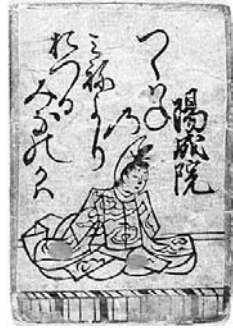 陽成院
つくはね
の
みねより
おつる
みなの川